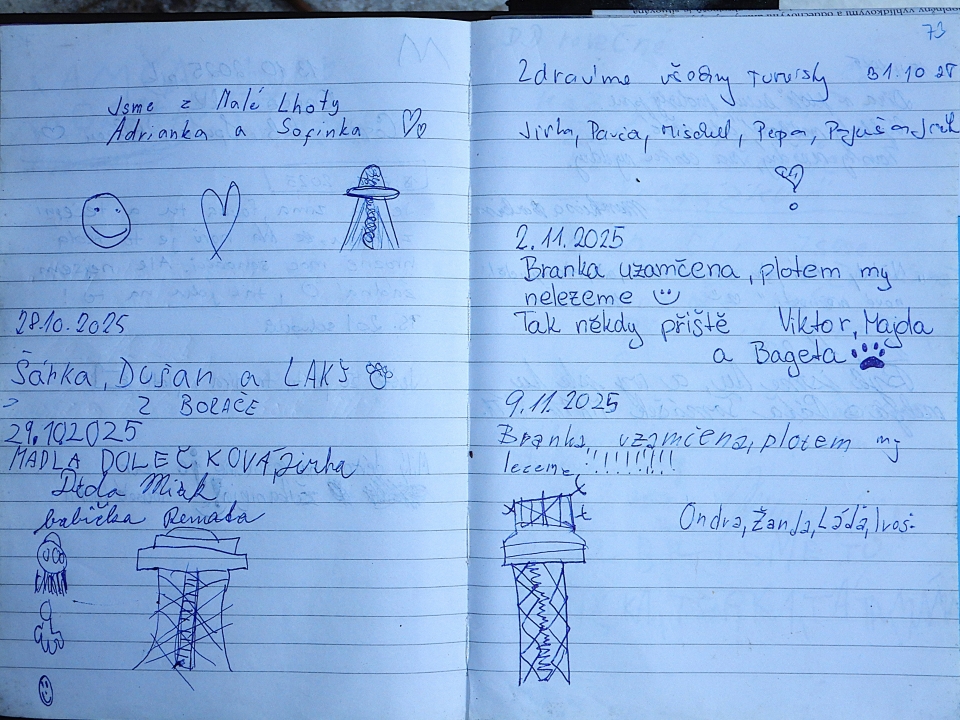 Jsme z Malé Lhoty
Adrianka a Sofinka
28.10.2025
Šárka, Dušan a LAKŠ
Z BORAČE
29.102025
MADLA DOLEČKOVA, Jirka
Děda Mirk
babička Renata
73
Zdravíme všechny Turisty 31.10 25
Jirka, Pavla, Mischel, Pepa,
2.11.2025
Branka uzamčena, plotem my
nelezeme
Tak někdy příště Viktor, Majda
a Bageta
9.11.2025
Branka uzamčena, plotem my
lezeme !!!!!!!!!
Ondra, Žanda, Láďa, Ivoš.